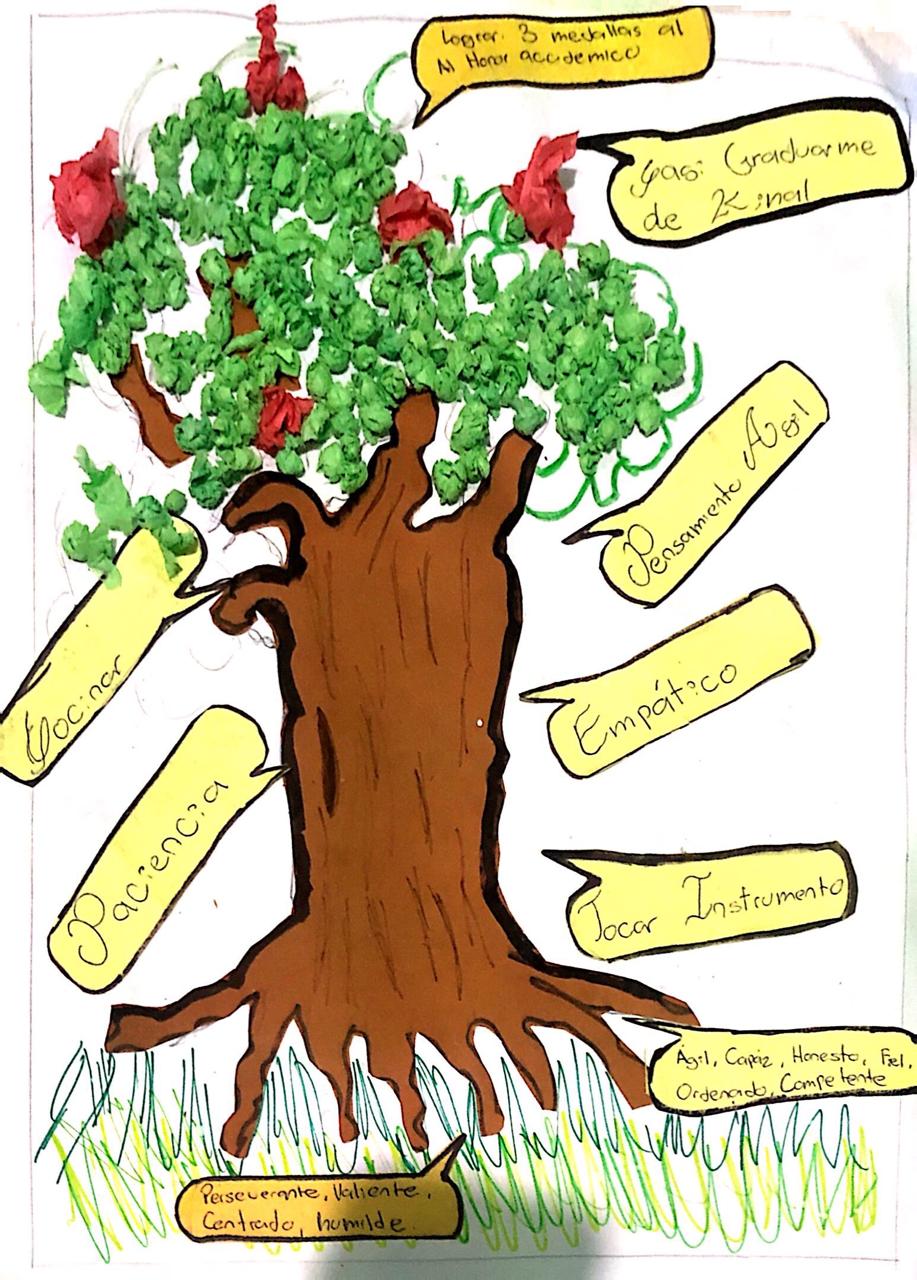 Lograr: 3 medallas al
Al Honor academico
Graduarme
de Kinal
Pensamiento Agil
Cocinar
Empático
Paciencia
Tocar Instrumento
Agil, Capáz, Honesto, Fiel,
Ordenado, Competente
Perseverante, Valiente,
Centrado, humilde.